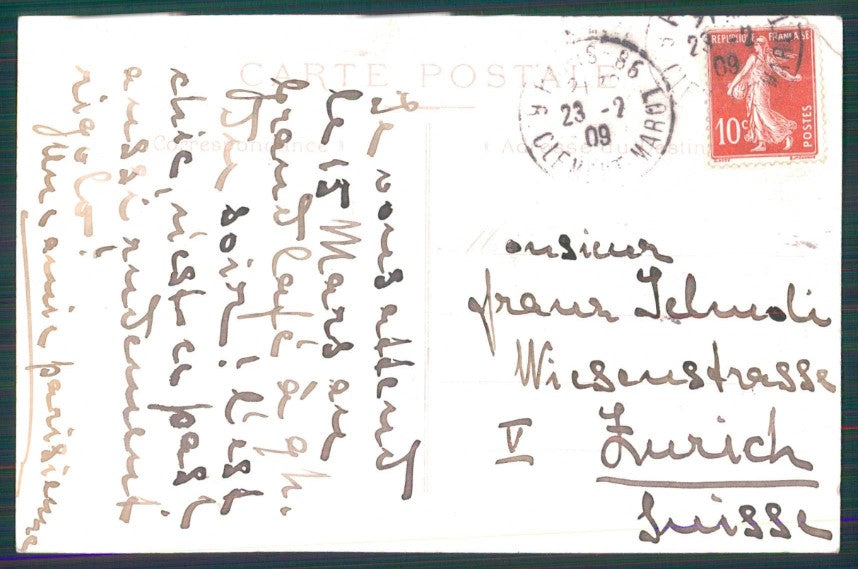 CARTE POSTALE
Correspondance
Adresse du Destinataire
REPUBLIQUE FRANÇAISE
10c
POSTES
PARIS-86
23 -2
09
R. CLEMENT-MAROT
23 -2
09
Je vous attend
le 15 Mars au
Grand Café à 9h.
du soir! C'est
chic, n'est ce pas?
aussi rudement
rigolo!
Une amie parisienne
Monsieur
Franz Schmidi
Wiesenstrasse
V Zurich
Suisse